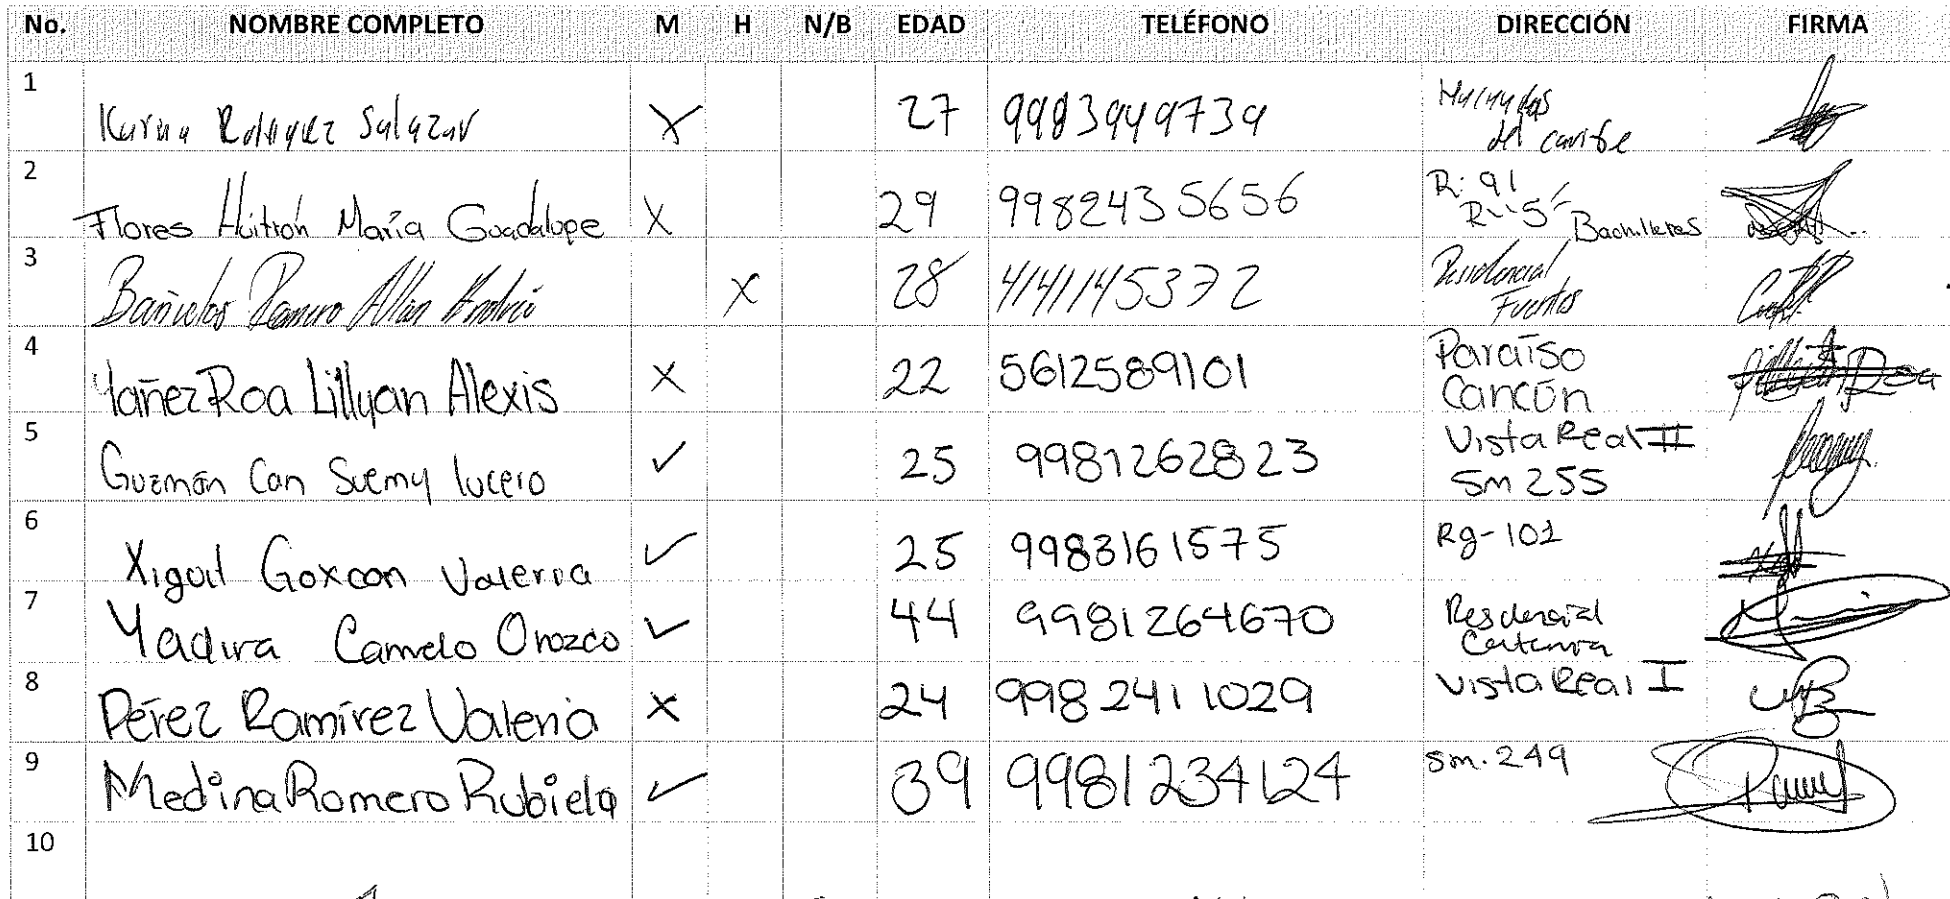 No. NOMBRE COMPLETO M H N/B EDAD TELÉFONO DIRECCIÓN FIRMA
1 Karina Salazar X 27 9983949739 del caribe
2 Flores Huitrón María Guadalupe X 29 9982435656 R: 91 Bachilleres
3 Bañuelos Romero Allan X 28 4141145372 Residencial
4 Yañez Roa Lillyan Alexis X 22 5612589101 Paraíso
Cancún
5 Guzmán Can Suemy lucero ✓ 25 9981262823 Vista Real II
Sm 255
6 Xiguil Goxcon Valeria ✓ 25 9983161575 Rg-101
7 Yadira Camelo Orozco ✓ 44 9981264670 Residencial
8 Pérez Ramírez Valeria X 24 9982411029 Vista Real I
9 Medina Romero Rubiela ✓ 39 9981234124 Sm. 249
10